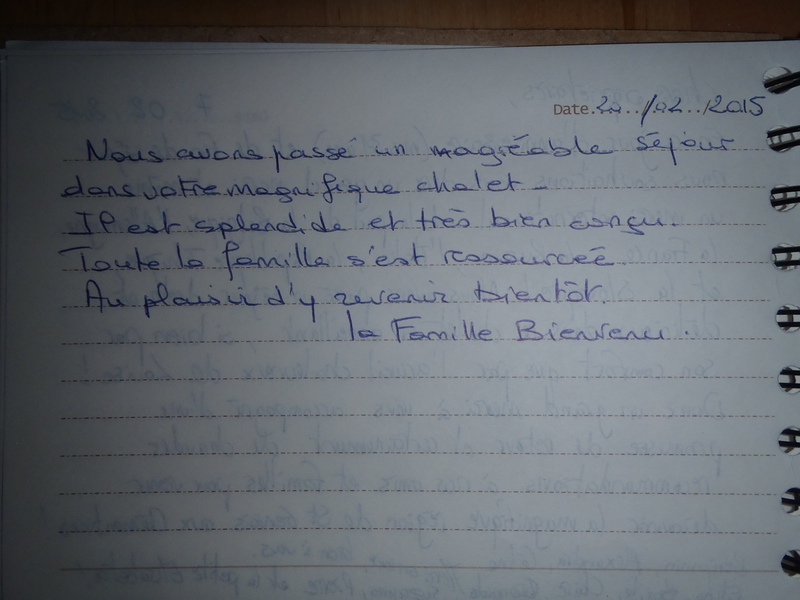 Date. 22../02../2015
Nous avons passé un magréable séjour
dans votre magnifique chalet -
Il est splendide et très bien conçu.
Toute la famille s'est ressourcée
Au plaisir d'y revenir bientôt.
la Famille Bienvenu.